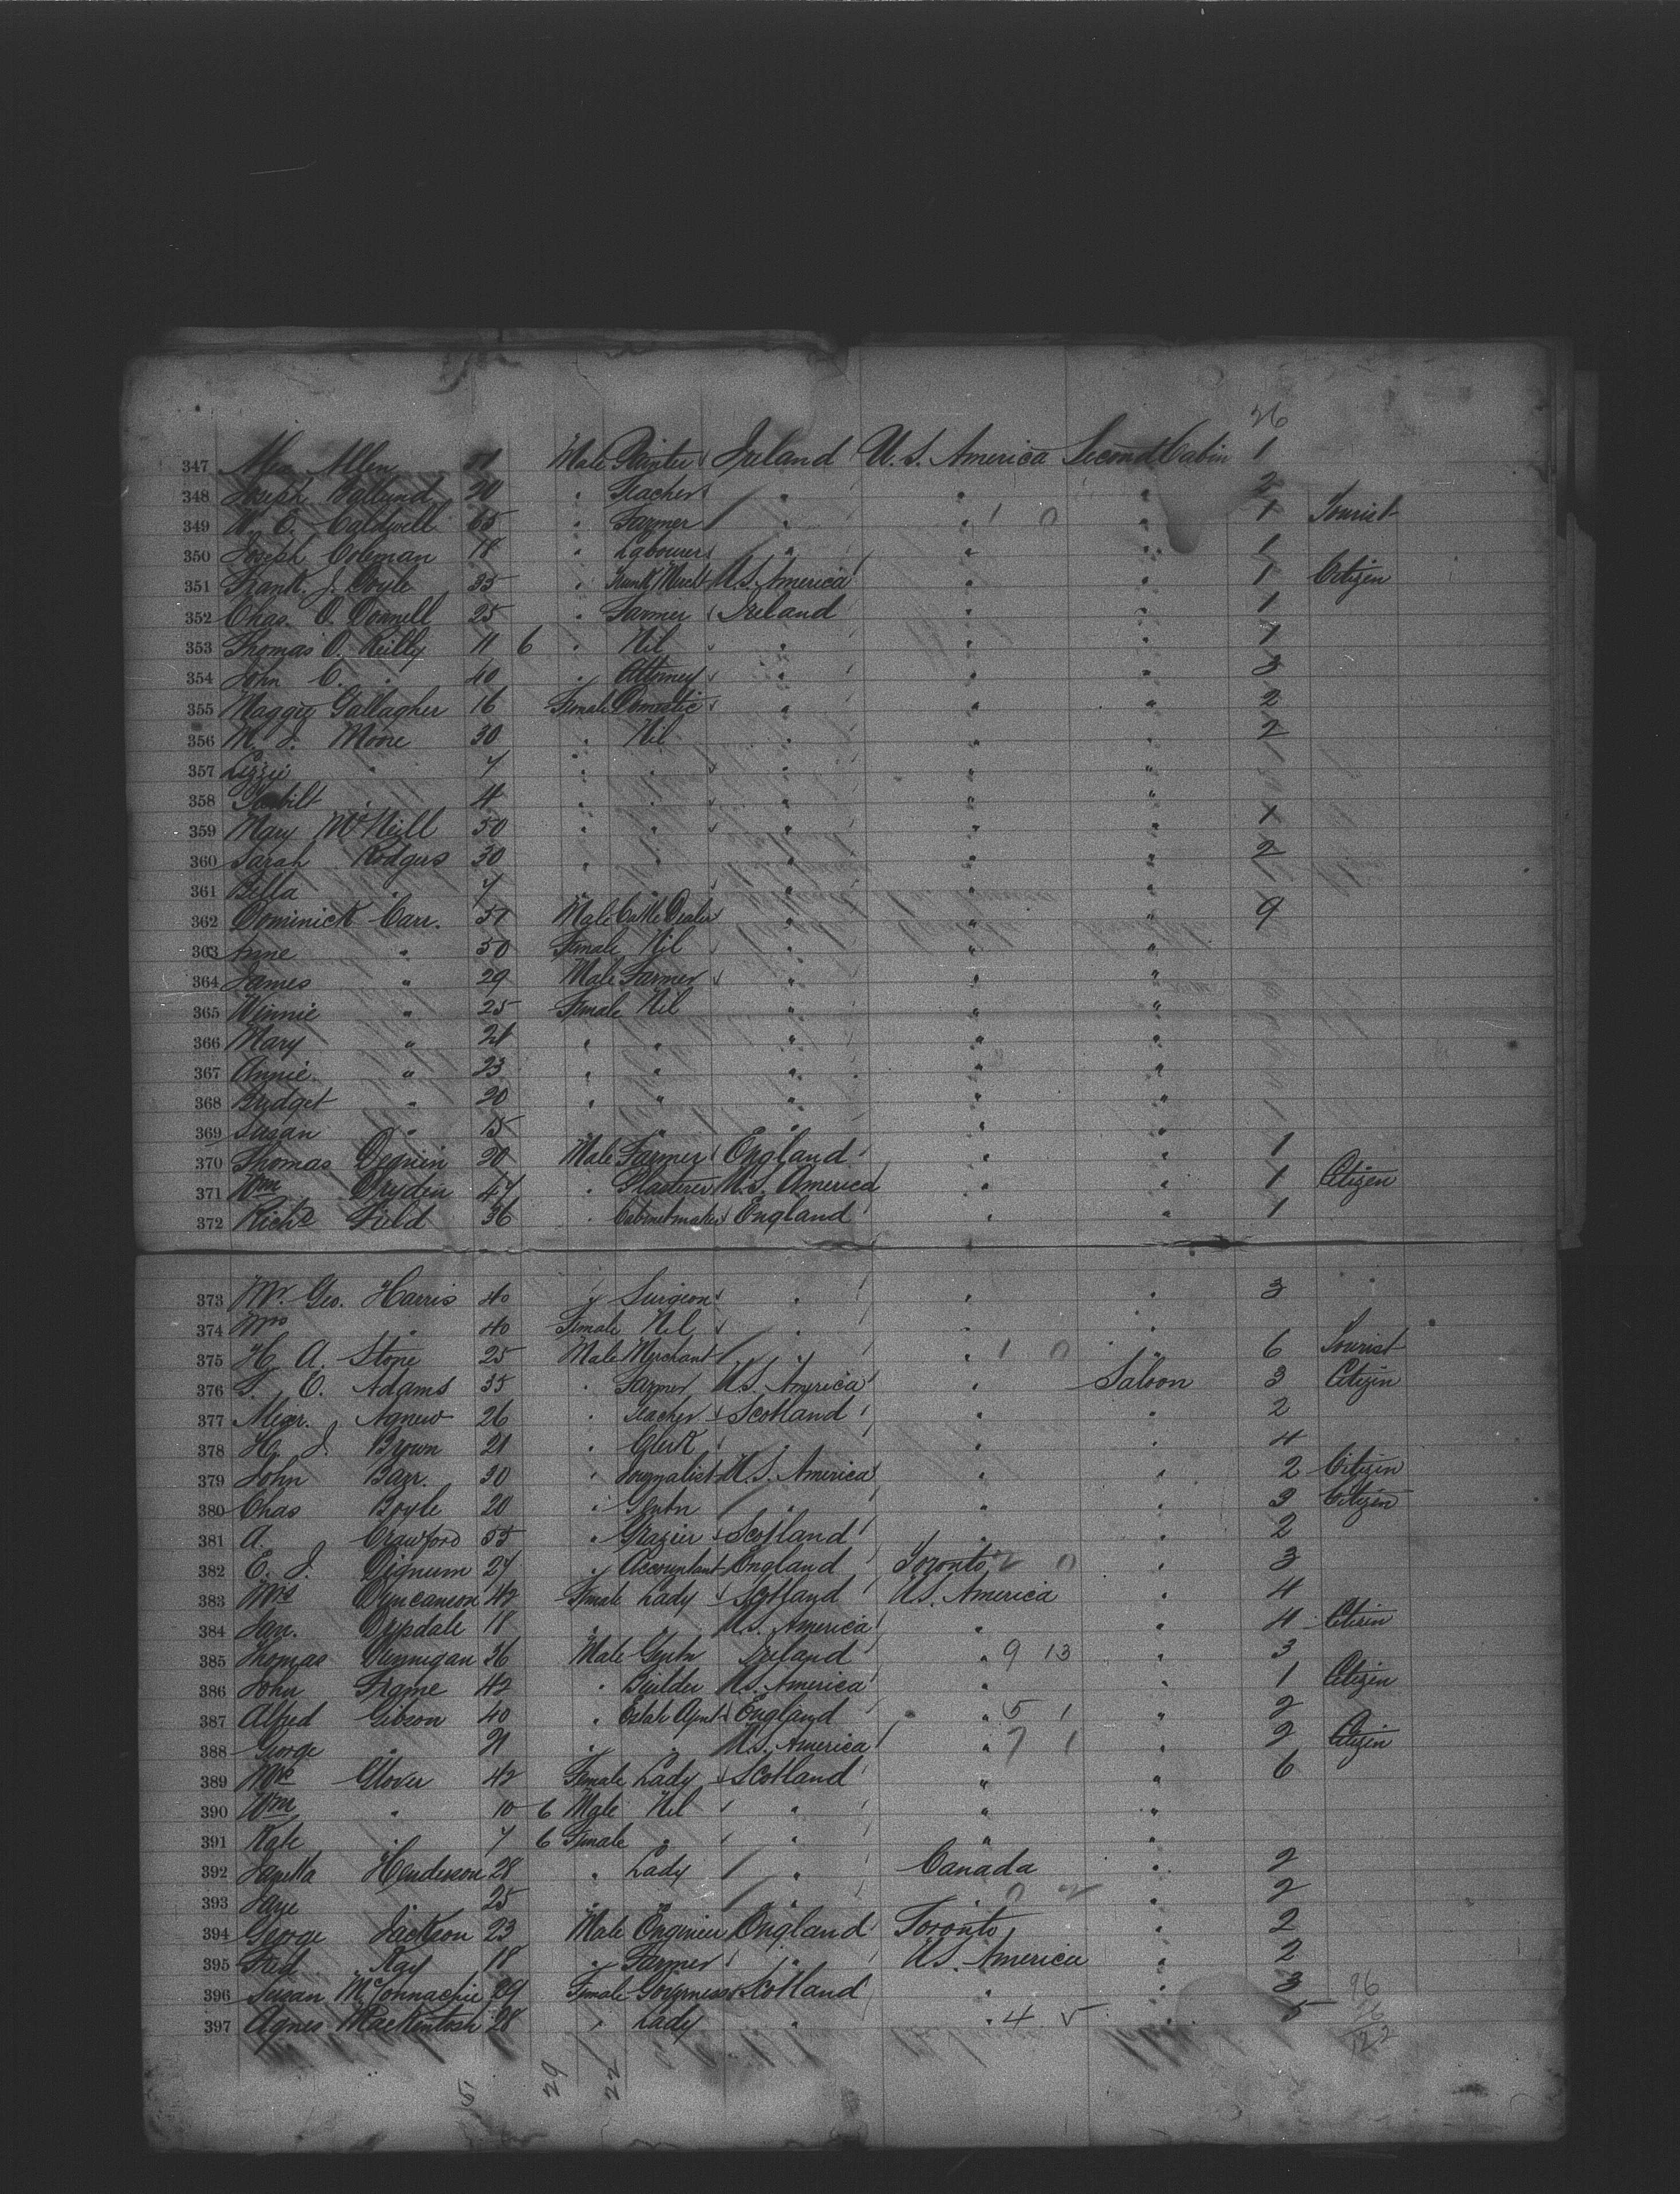 26
347 Alex Allen 51 Male Painter Ireland U.S. America Second Cabin 1
348 Joseph 20 " Teacher " " " 2
349 W. C. Caldwell 65 " Farmer " " 1 0 " 1 Tourist
350 Joseph Coleman 18 " Labourer " " " 1
351 Frank. J. Coyle 35 " Trunk Mercht U.S. America " " 1 Citizen
352 Chas. O. Donnell 25 " Farmer Ireland " " 1
353 Thomas O. Reilly 11 6 " Nil " " " 1
354 John C. " 40 " Attorney " " " 3
355 Maggie Gallagher 16 Female Domestic " " " 2
356 M. J. Moore 30 " Nil " " " 2
357 Lizzie " 7 " " " " "
358 " 4 " " " " "
359 Mary McNeill 50 " " " " " 1
360 Sarah Rodgers 30 " " " " " 2
361 Bella " 7 " " " " "
362 Dominick Carr. 51 Male Cattle Dealer " " " 9
363 Anne " 50 Female Nil " " "
364 James " 29 Male Farmer " " "
365 Winnie " 25 Female Nil " " "
366 Mary " 21 " " " " "
367 Annie. " 23 " " " " "
368 Bridget " 20 " " " " "
369 Susan " 15 " " " " "
370 Thomas Degnen 20 Male Farmer England " " 1
371 Wm Dryden 47 " Plasterer U.S. America " " 1 Citizen
372 Richd Field 36 " Cabinetmaker England " " 1
373 Mr. Geo. Harris 40 " Surgeon " " " 3
374 Mrs " 40 Female Nil " " "
375 H. A. Stone 25 Male Merchant " " 1 0 " 6 Tourist
376 E. Adams 35 " Farmer U.S. America " Saloon 3 Citizen
377 Alexr. Agnew 26 " Teacher Scotland " " 2
378 H. J. Brown 21 " Clerk " " " 4
379 John Barr. 30 " Journalist U.S. America " " 2 Citizen
380 Chas Boyle 20 " Gentn " " " 3 Citizen
381 A. Crawford 55 " Grazier Scotland " " 2
382 E. J. Dignum 27 " Accountant England Toronto 2 0 " 3
383 Mrs Duncanson 42 Female Lady Scotland U.S. America " 4
384 Jan. Drysdale 18 " " U.S. America " " 4 Citizen
385 Thomas Finnigan 36 Male Gentn Ireland " 9 13 " 3
386 John Frame 42 " Builder U.S. America " " 1 Citizen
387 Alfred Gibson 40 " Estate Agent England " 5 1 " 2
388 George " 21 " " U.S. America " 7 1 " 2 Citizen
389 Mrs Glover 42 Female Lady Scotland " " 6
390 Wm " 10 6 Male Nil " " "
391 Kate " 7 6 Female " " " "
392 Henderson 28 " Lady " Canada " 2
393 Jane " 25 " " " " 0 2 " 2
394 George Jackson 23 Male Engineer England Toronto " 2
395 Fred Kay 18 " Farmer " U.S. America " 2
396 Susan McConnachie 29 Female Governess Scotland " " 3
397 Agnes MacKintosh 28 " Lady " " 4 " 5
96
26
122
5 29 22